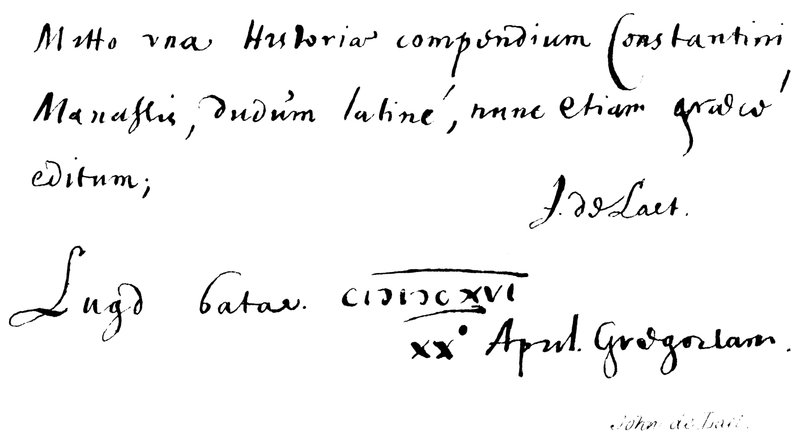 Mitto una Historiæ compendium Constantini
Manassis, dudum latinè, nunc etiam græcè
editum;
J. de Laet.
Lugd batav. CIↃIↃCXVI
XX° April. Gregorian.
John de Laet.